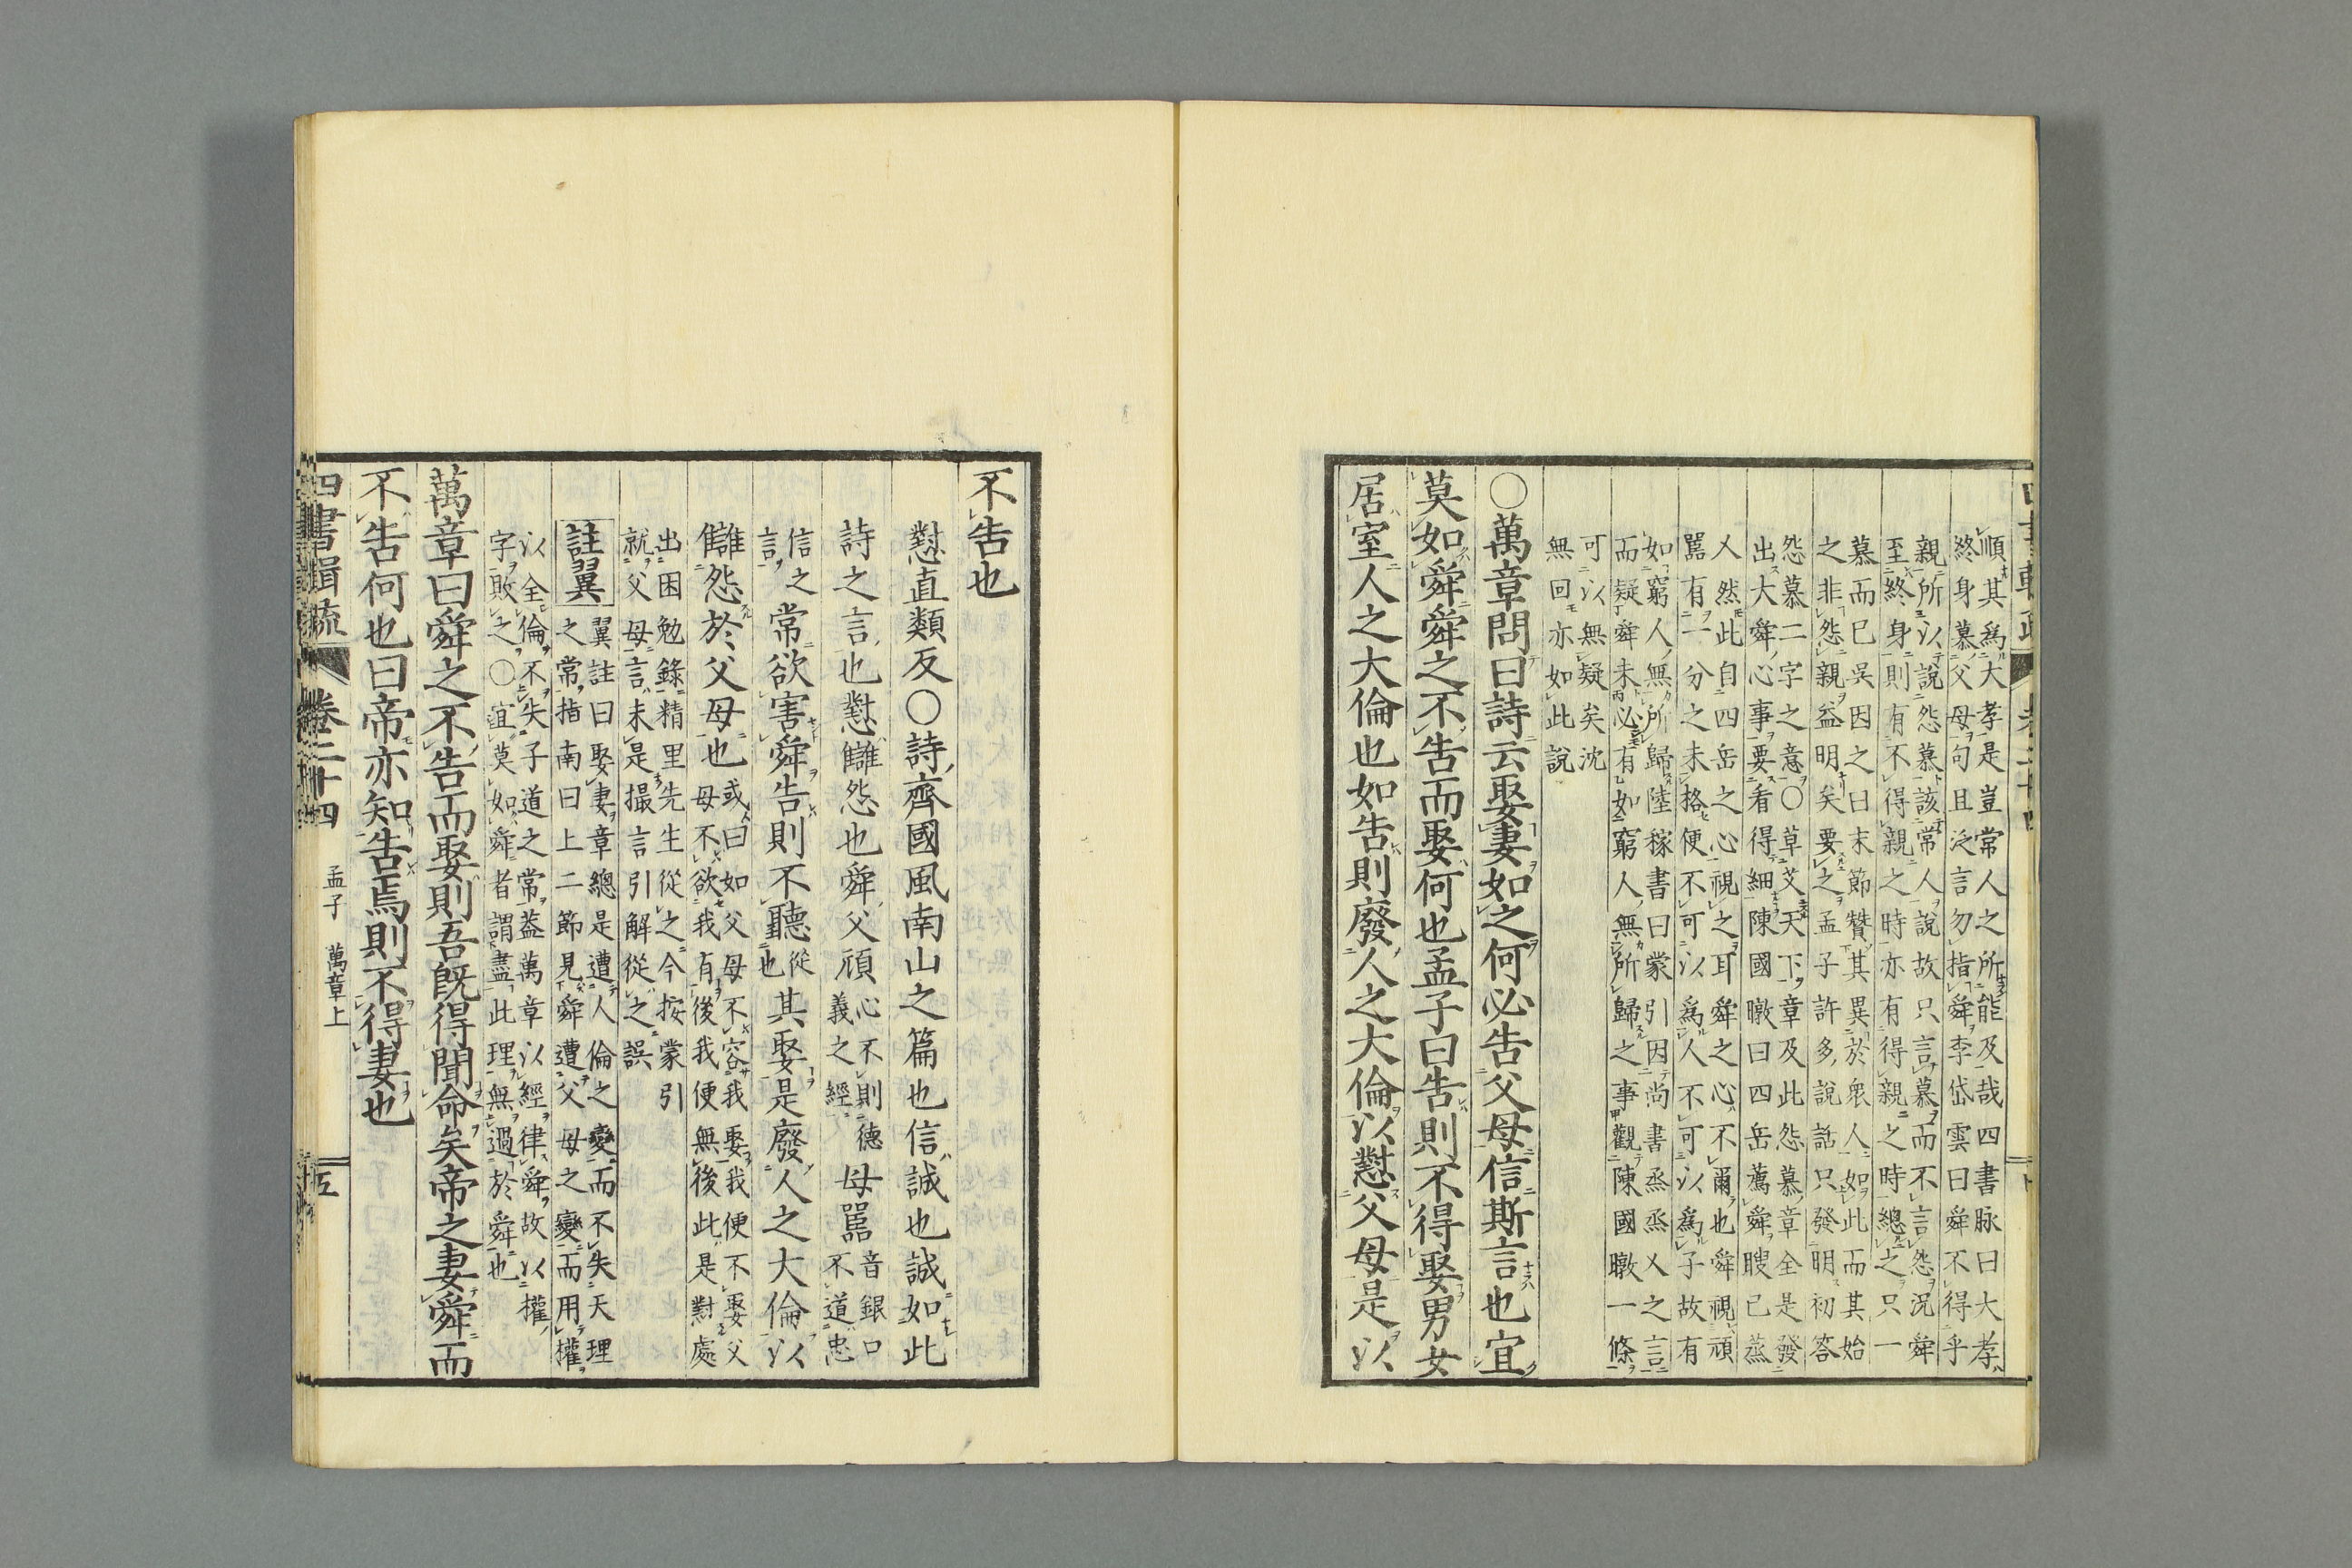 順其爲大孝是豈常人之所能及哉四書脉曰大孝
終身慕父母句且泛言勿指舜李岱雲曰舜不得乎
親所以說怨慕該常人說故只言慕而不言怨況舜
至終身則有不得親之時亦有得親之時總之只一
慕而已吳因之曰末節贊其異於衆人如此而其始
之非怨親益明矣要之孟子許多說話只發明初答
怨慕二字之意○草艾天下章及此怨慕章全是發
出大舜心事要看得細陳國暾曰四岳薦舜瞍已烝
乂然此自四岳之心視之耳舜之心不爾也舜視頑
嚚有一分之未格便不可以爲人不可以爲子故有
如窮人無所歸陸稼書曰蒙引因尚書烝烝乂之言
而疑舜未必有如窮人無所歸之事觀陳國暾一條
可以無疑矣沈
無回亦如此說
○萬章問曰詩云娶妻如之何必告父母信斯言也宜
莫如舜舜之不告而娶何也孟子曰告則不得娶男女
居室人之大倫也如告則廢人之大倫以懟父母是以
不告也
懟直類反○詩齊國風南山之篇也信誠也誠如此
詩之言也懟讎怨也舜父頑心不則德
義之經母嚚音銀口
不道忠
信之
言常欲害舜告則不聽從
也其娶是廢人之大倫以
讎怨於父母也或曰如父母不容我娶我便不娶父
母不欲我有後我便無後此是對處
出困勉錄精里先生從之今按蒙引
就父母言未是撮言引解從之誤
註翼翼註曰娶妻章總是遭人倫之變而不失天理
之常指南曰上二節見舜遭父母之變而用權
以全倫不失子道之常蓋萬章以經律舜故以權
字敗之○宜莫如舜者謂盡此理無過於舜也
萬章曰舜之不告而娶則吾旣得聞命矣帝之妻舜而
不告何也曰帝亦知告焉則不得妻也
四書輯疏
卷二十四
孟子 萬章上
五